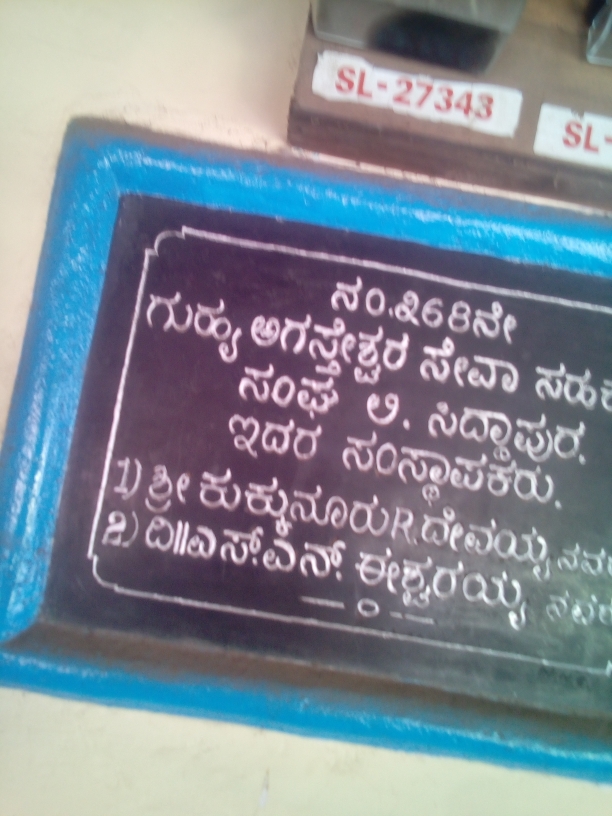 SL-27343
SL-
ನಂ.೩68ನೇ
ಗುಹ್ಯ ಅಗಸ್ತೇಶ್ವರ ಸೇವಾ ಸಹಕ
ಸಂಘ ಲಿ. ಸಿದ್ದಾಪುರ.
ಇದರ ಸಂಸ್ಥಾಪಕರು.
1) ಶ್ರೀ ಕುಕ್ಕುನೂರು R. ದೇವಯ್ಯ
2) ದಿ॥ಎಸ್.ಎನ್. ಈಶ್ವರಯ್ಯ